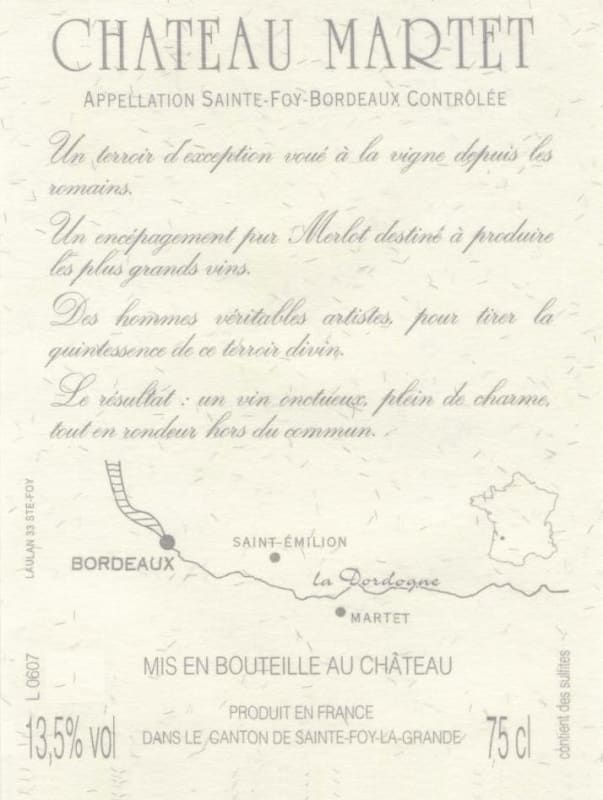 CHATEAU MARTET
APPELLATION SAINTE-FOY-BORDEAUX CONTRÔLÉE
Un terroir d'exception voué à la vigne depuis les
romains.
Un encépagement pur Merlot destiné à produire
les plus grands vins.
Des hommes véritables artistes, pour tirer la
quintessence de ce terroir divin.
Le résultat : un vin onctueux, plein de charme,
tout en rondeur hors du commun.
LAULAN 33 STE-FOY
BORDEAUX
SAINT-ÉMILION
la Dordogne
MARTET
L 0607
MIS EN BOUTEILLE AU CHÂTEAU
PRODUIT EN FRANCE
DANS LE CANTON DE SAINTE-FOY-LA-GRANDE
13,5% vol
75 cl
contient des sulfites